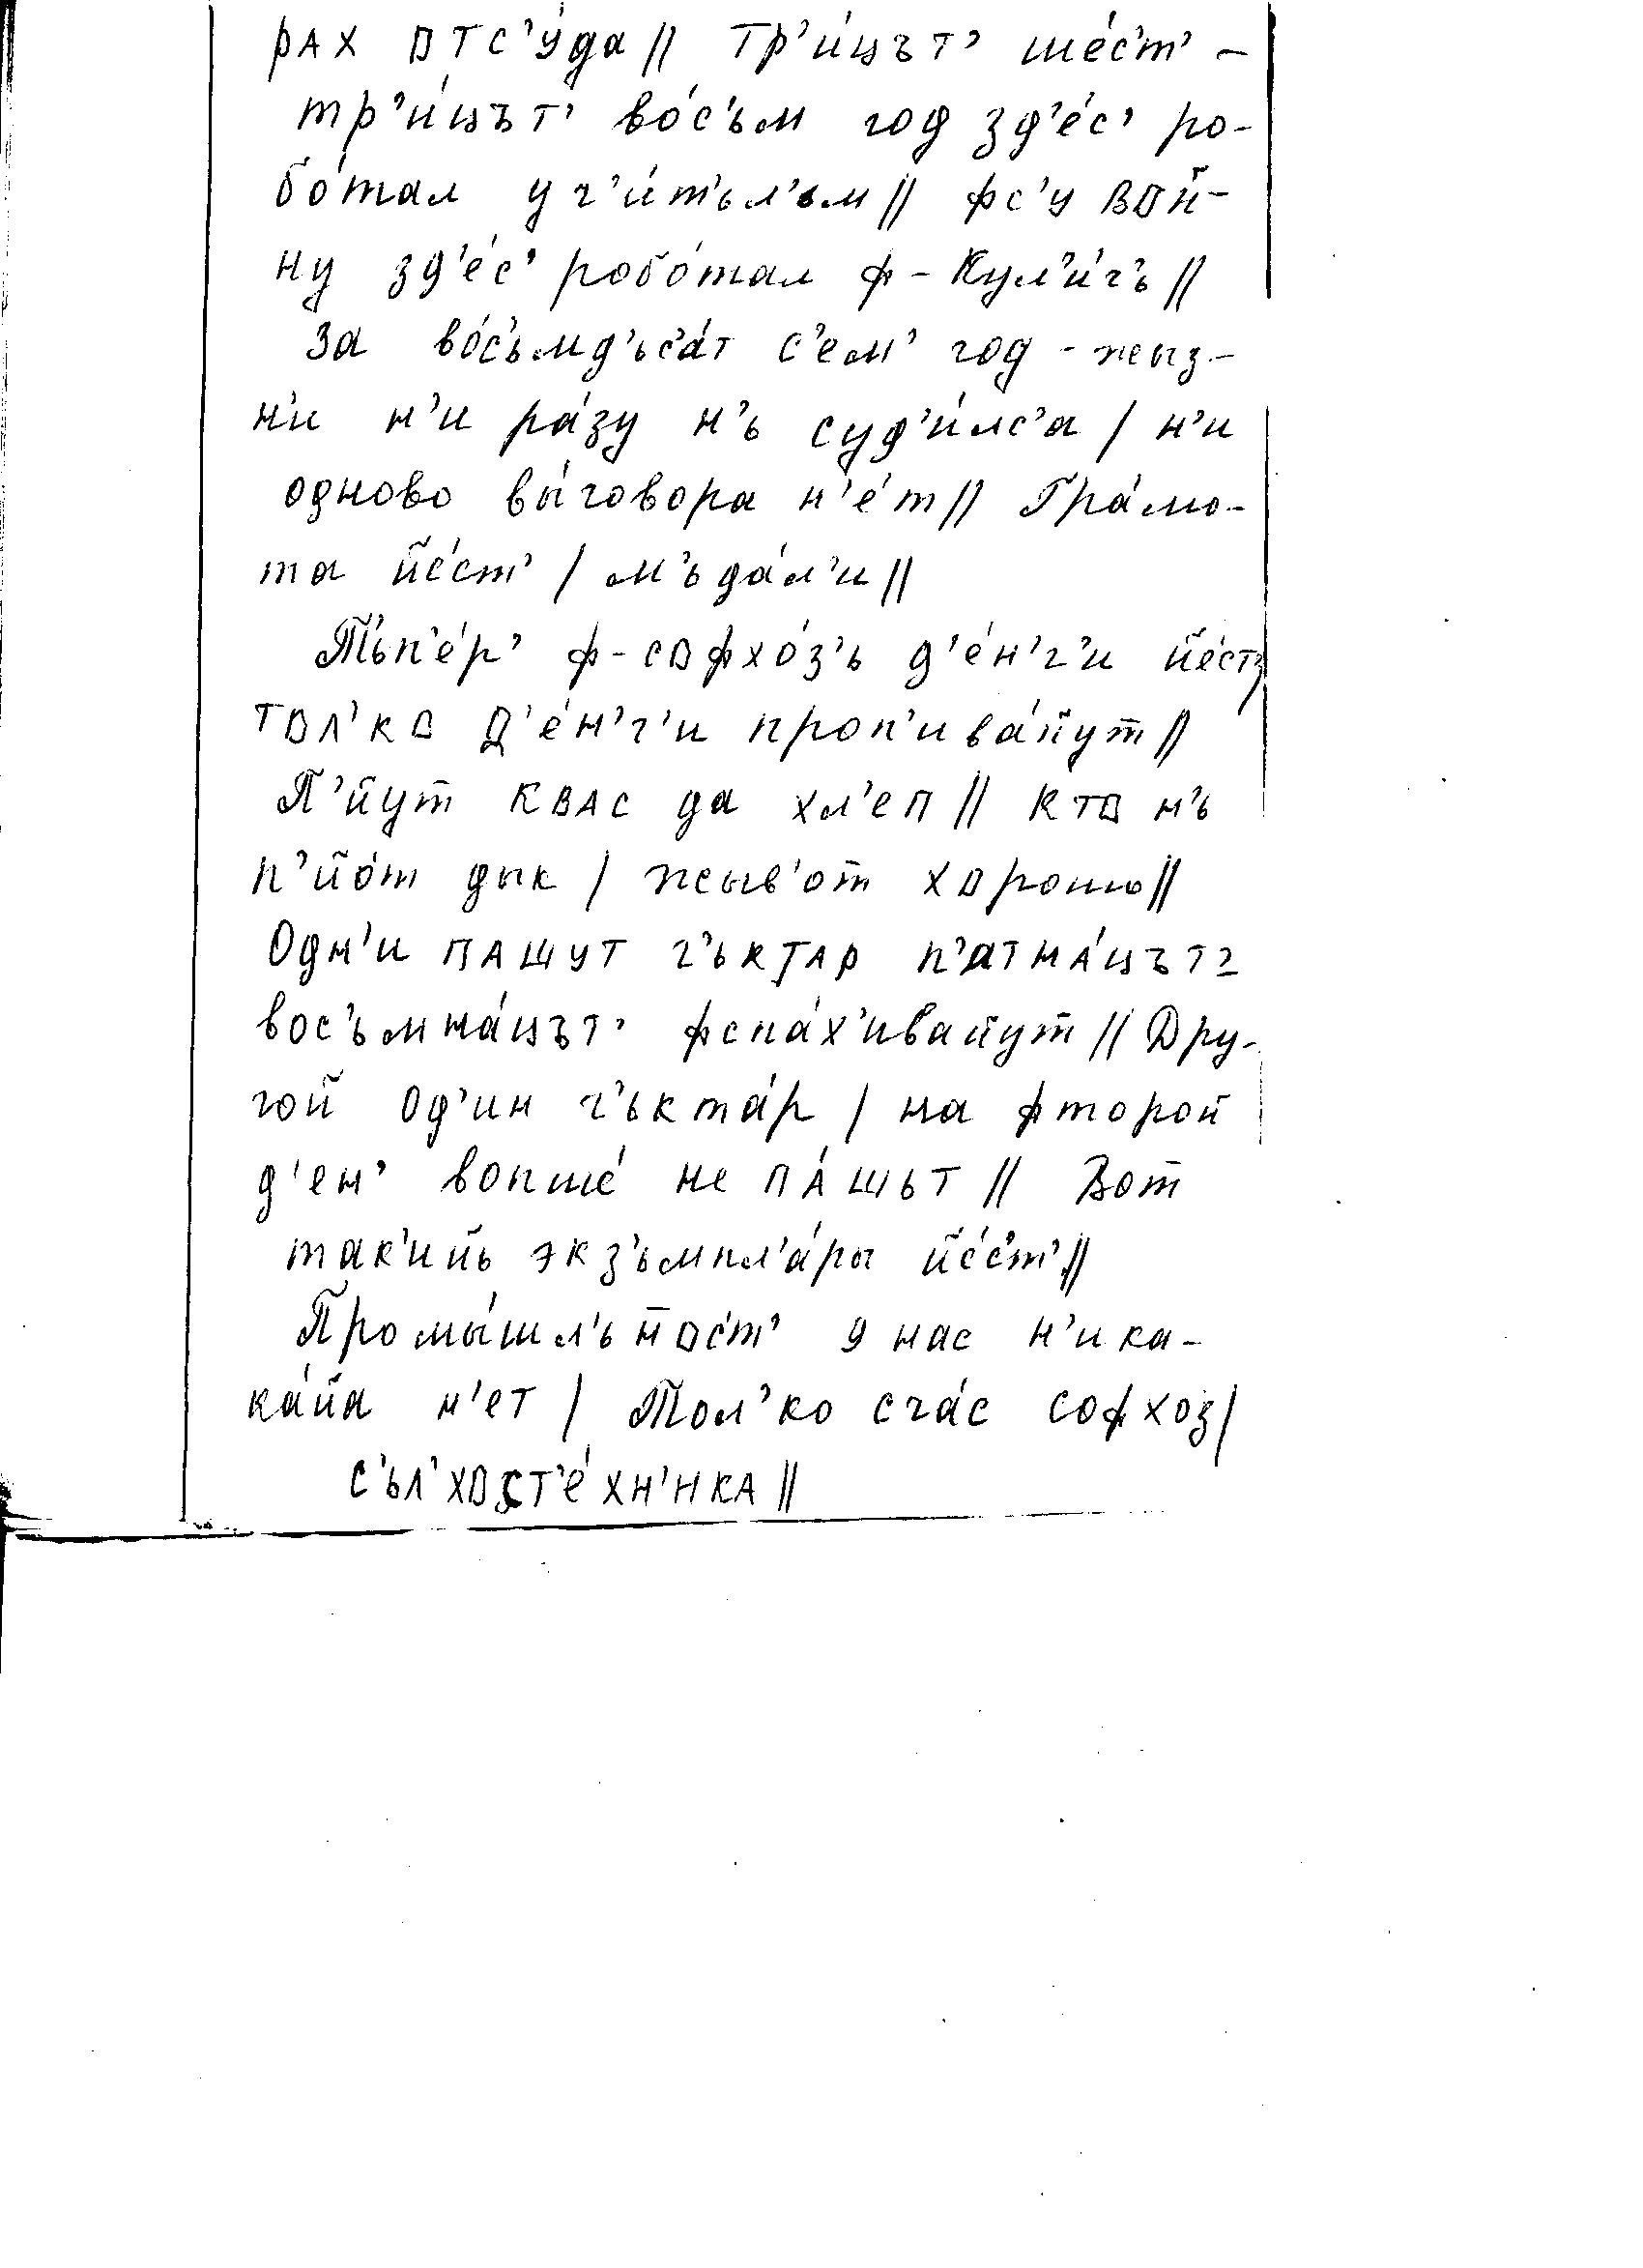 рах отс’у́да // Тр’и́цът’ ше́с’т’ –
тр’и́цът’ во́с’ьм год зд’е́с’ ро-
бо́тал уч’и́т’ьл’ьм // фс’у вой-
ну зд’е́с’ робо́тал ф-Кул’и́г’ь //
За во́с’ьмд’ьс’а́т с’ем’ год – жыз-
н’и н’и ра́зу н’ь суд’и́лс’а / н’и
одново вы́говора н’е́т // Гра́мо-
та йе́ст’ / м’ьда́л’и //
Т’ьп’е́р’ ф-софхо́з’ь д’е́н’г’и йе́ст’/
тол’ко д’е́н’г’и проп’ива́йут //
П’йут квас да хл’еп // кто н’ь
п’йо́т дык / жыв’от хорошо //
Одн’и пашут г’ьктар п’атна́цът’
вос’ьмна́цът’ фспа́х’ивайут // Дру-
гой од’ин г’ькта́р / на фторой
д’ен’ вопше́ не па́шьт // Вот
так’ийь экз’ьмпл’а́ры йе́с’т’ //
Промы́шл’ьност’ у нас н’ика-
ка́йа н’ет / Тол’ко сча́с софхоз /
с’ьл’хост’е́хн’ика //